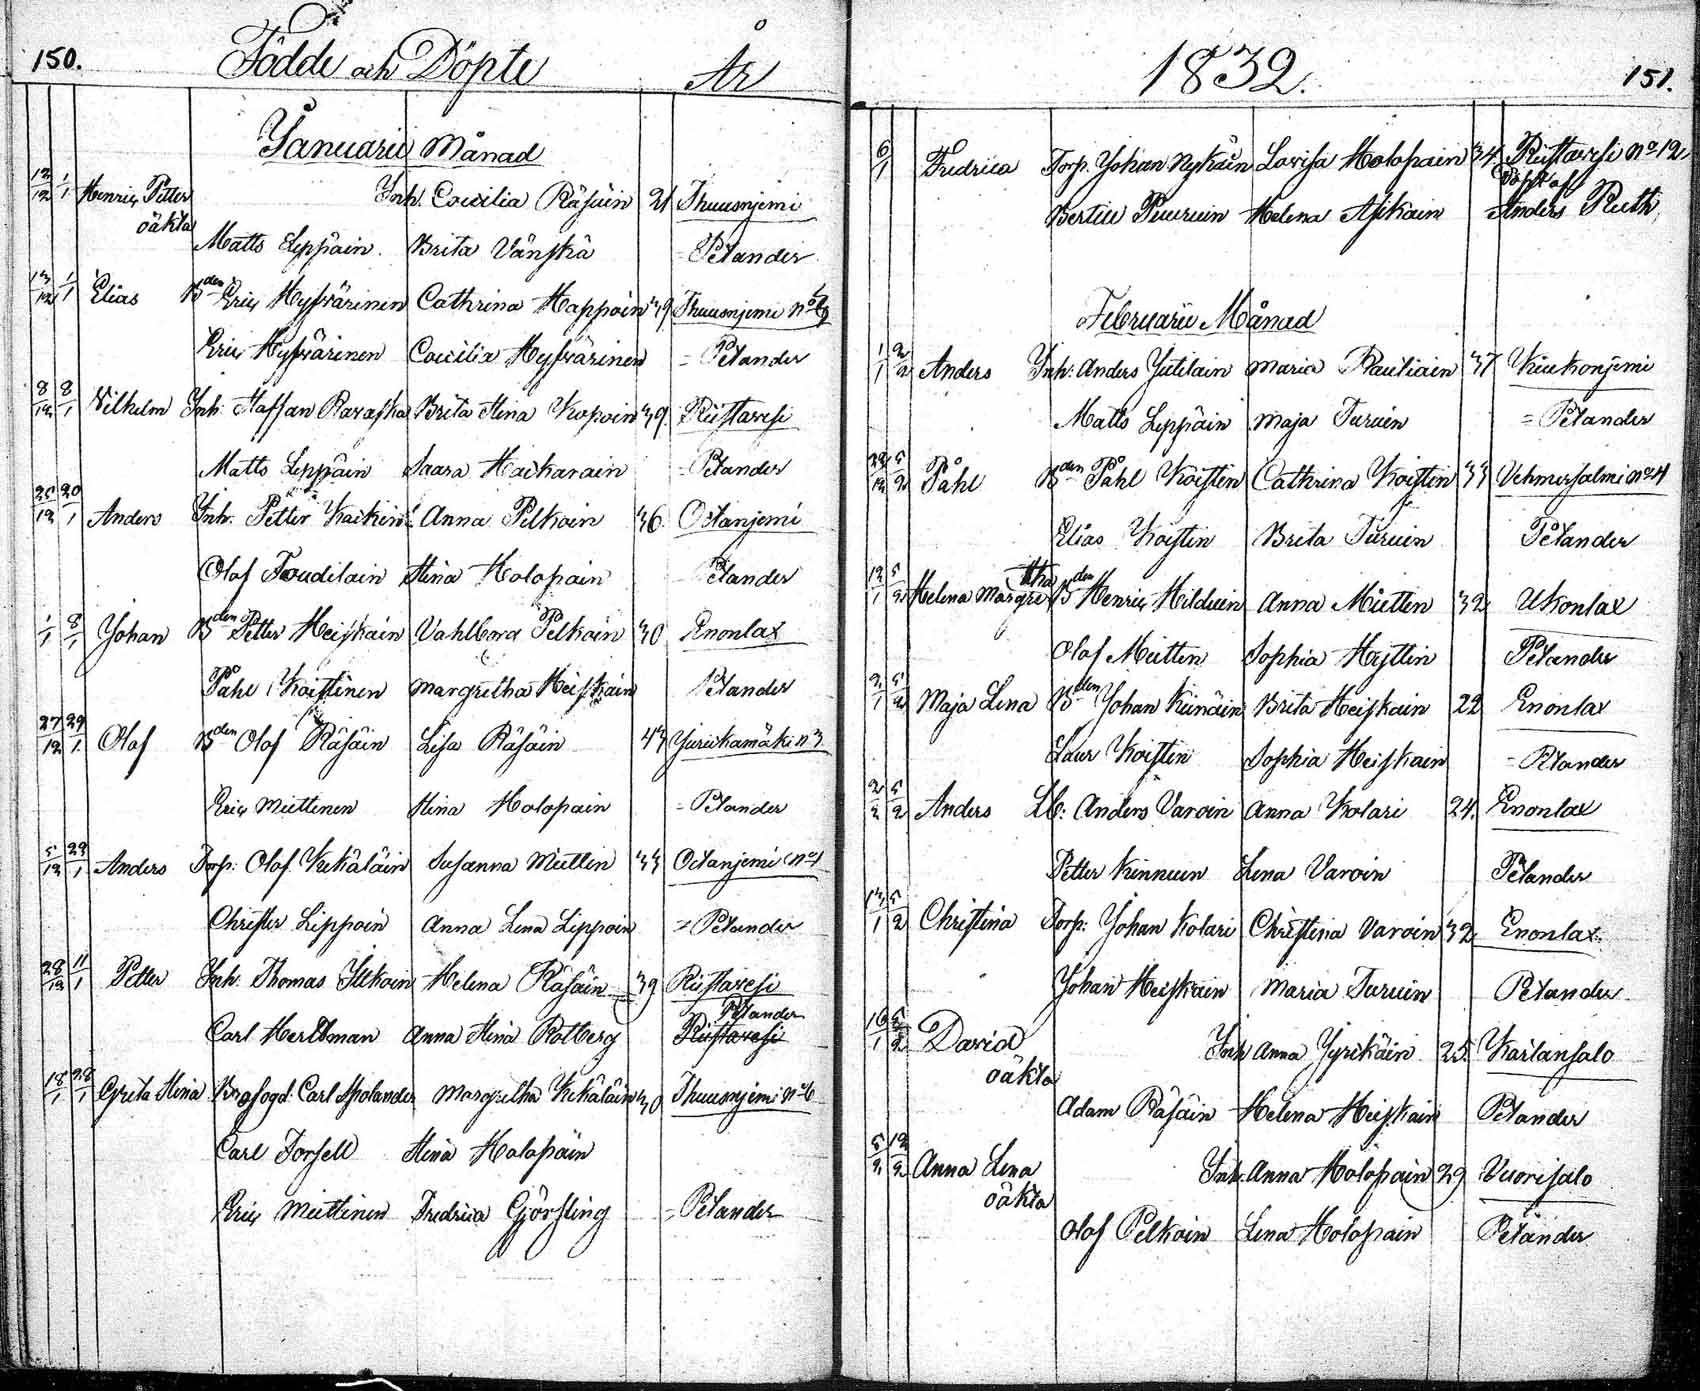 150. Födde och Döpte År
Januarii Månad
12/12 1/1 Henric Petter Inh. Coecilia Räsäin 21 Thuusnjemi
oäkta
Matts Leppäin. Brita Vänskä = Petander
13/12 1/1 Elias Bden Eric Hyfvärinen Cathrina Happoin 39 Thuusnjemi No
Eric Hyfvärinen Coecilia Hyfvärinen = Petander
8/12 8/1 Vilhelm Inh. Staffan Ravaska Brita Stina Kopoin 39. Riistavesi
Matts Leppäin Saara Hackarain = Petander
25/12 20/1 Anders Inh. Petter Kaikein Anna Pelkoin 36 Oitanjemi
Olof Toudilain Stina Holopain Petander
1/1 8/1 Johan Bden Petter Heiskain Vahlborg Pelkoin 30 Enonlax
Påhl Koistinen Margretha Heiskain Petander
27/12 29/1 Olof Bden Olof Räsäin Lisa Räsäin 43 Juurikamäki n 3
Eric Miettinen Stina Holopain = Petander
5/12 29/1 Anders Torp. Olof Kekäläin Susanna Miettin 33 Oitanjemi No 1
Christer Lippoin Anna Lena Lippoin = Petander
28/12 11/1 Petter Inh. Thomas Ikkoin Helena Räsäin 39 Riistavesi
Petander
Carl Herlman Anna Stina Rotberg Riistavesi
18/1 28/1 Greta Stina Brofogd. Carl Spolander Margretha Kekäläin 30 Thuusnjemi No 6
Carl Forsell Stina Holopäin
Eric Miettinen Fredrica Gjösling = Petander
1832. 151.
6/1 Fredrica Torp. Johan Nykäin Lovisa Holopain 34 Riistavesi No 12
Döpt af
Bertil Puuruin Helena Asikain Anders Ruth.
Februarii Månad
1/1 2/2 Anders Inh. Anders Jutilain Maria Rautiain 37 Kiukonjemi
Matts Leppäin Maja Turuin = Petander
29/12 5/2 Påhl Bden Påhl Koistin Cathrina Koistin 33 Vehmersalmi No 4
Elias Koistin Brita Turuin Petander
12/1 5/2 Helena Margretha Bden Henric Hilduin Anna Miettin 32 Ukonlax
Olof Miettin Sophia Hyttin Petander
2/1 5/2 Maja Lena Bden Johan Kinäin Brita Heiskain 22 Enonlax
Laur Koistin Sophia Heiskain = Petander
2/2 5/2 Anders Lb: Anders Varoin Anna Kolari 24. Enonlax
Petter Kinnuin Lena Varoin Petander
13/1 5/2 Christina Torp: Johan Kolari Christina Varoin 32 Enonlax
Johan Heiskain Maria Turuin Petander
16/1 5/2 David Inh Anna Jyrikäin 25. Kaitansalo
oäkta
Adam Räsäin Helena Heiskain Petander
5/2 12/2 Anna Lena Inh. Anna Holopain 29 Vuorisalo
oäkta
Olof Pelkoin Lena Holopain Petander